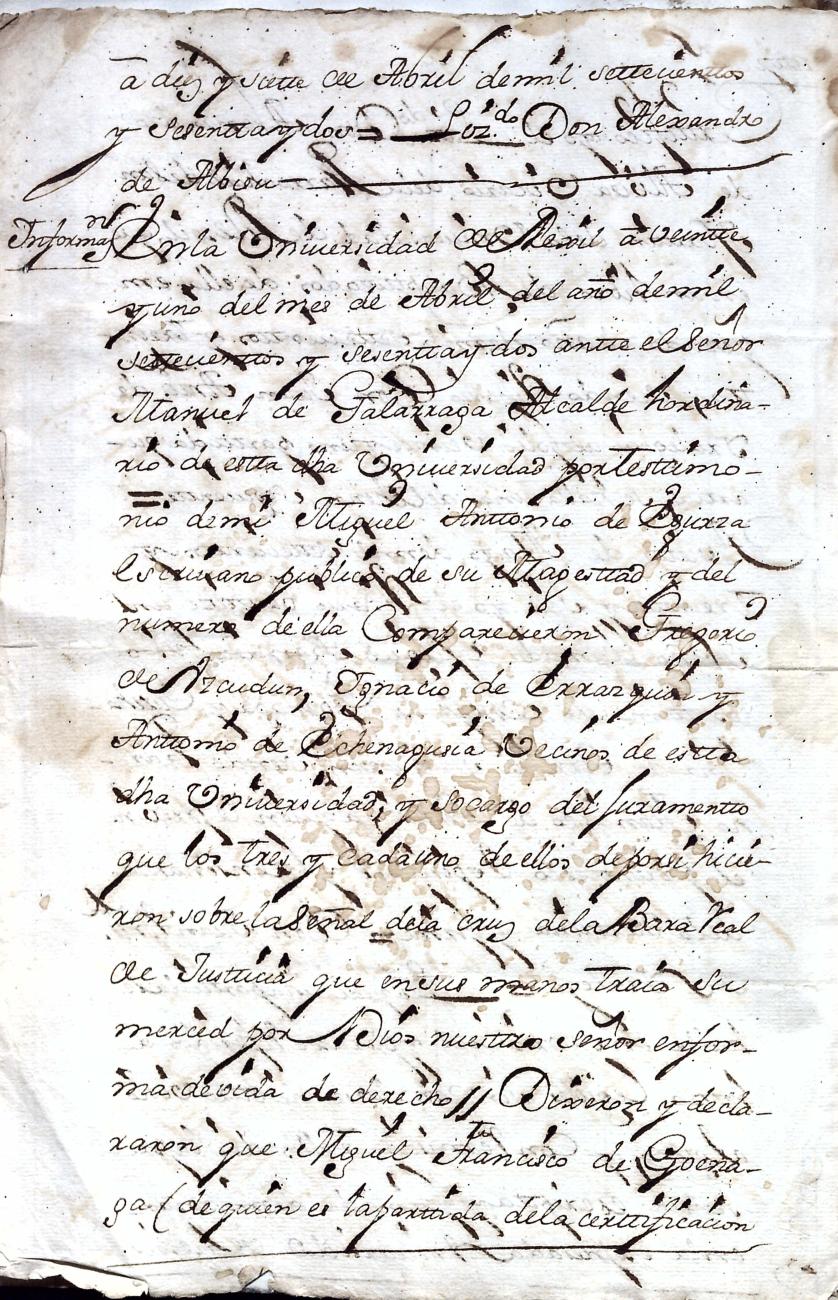 à diez y siette de Abril de mil settecienttos
y sesentta y dos = Lizdo. Don Alexandro
de Albisu
Informaon
En la Universidad de Rexil à veintte
y uno del mes de Abril del año de mil
settecienttos y sesentta y dos antte el Señor
Manuel de Galarraga Alcalde hordina-
rio de estta dha Universidad por Testtimo-
nio de mi Miguel Anttonio de Egurza
Escrivano publico de su Magesttad y del
numero de ella Comparecieron Gregorio
de Azcudun, Ignacio de Errazquin y
Anttonio de Echenagusia Vecinos de estta
dha Universidad, y socargo del Juramentto
que los tres y cada uno de ellos de por si hicie-
ron sobre la Señal de la cruz de la Bara Real
de Justicia que en sus manos traia su
merced por Dios nuestro señor en for-
ma devida de derecho // Dixeron y decla-
raron que Miguel Francisco de Goena-
ga (de quien es la parttida de la certtificacion